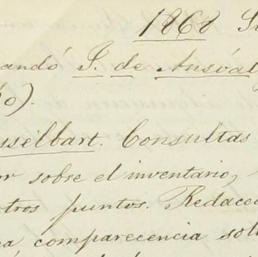 1868
andó S. de Ansóal
o).
sselbart. Consultas
or sobre el inventario,
tros puntos. Redacc
a, comparecencia soli